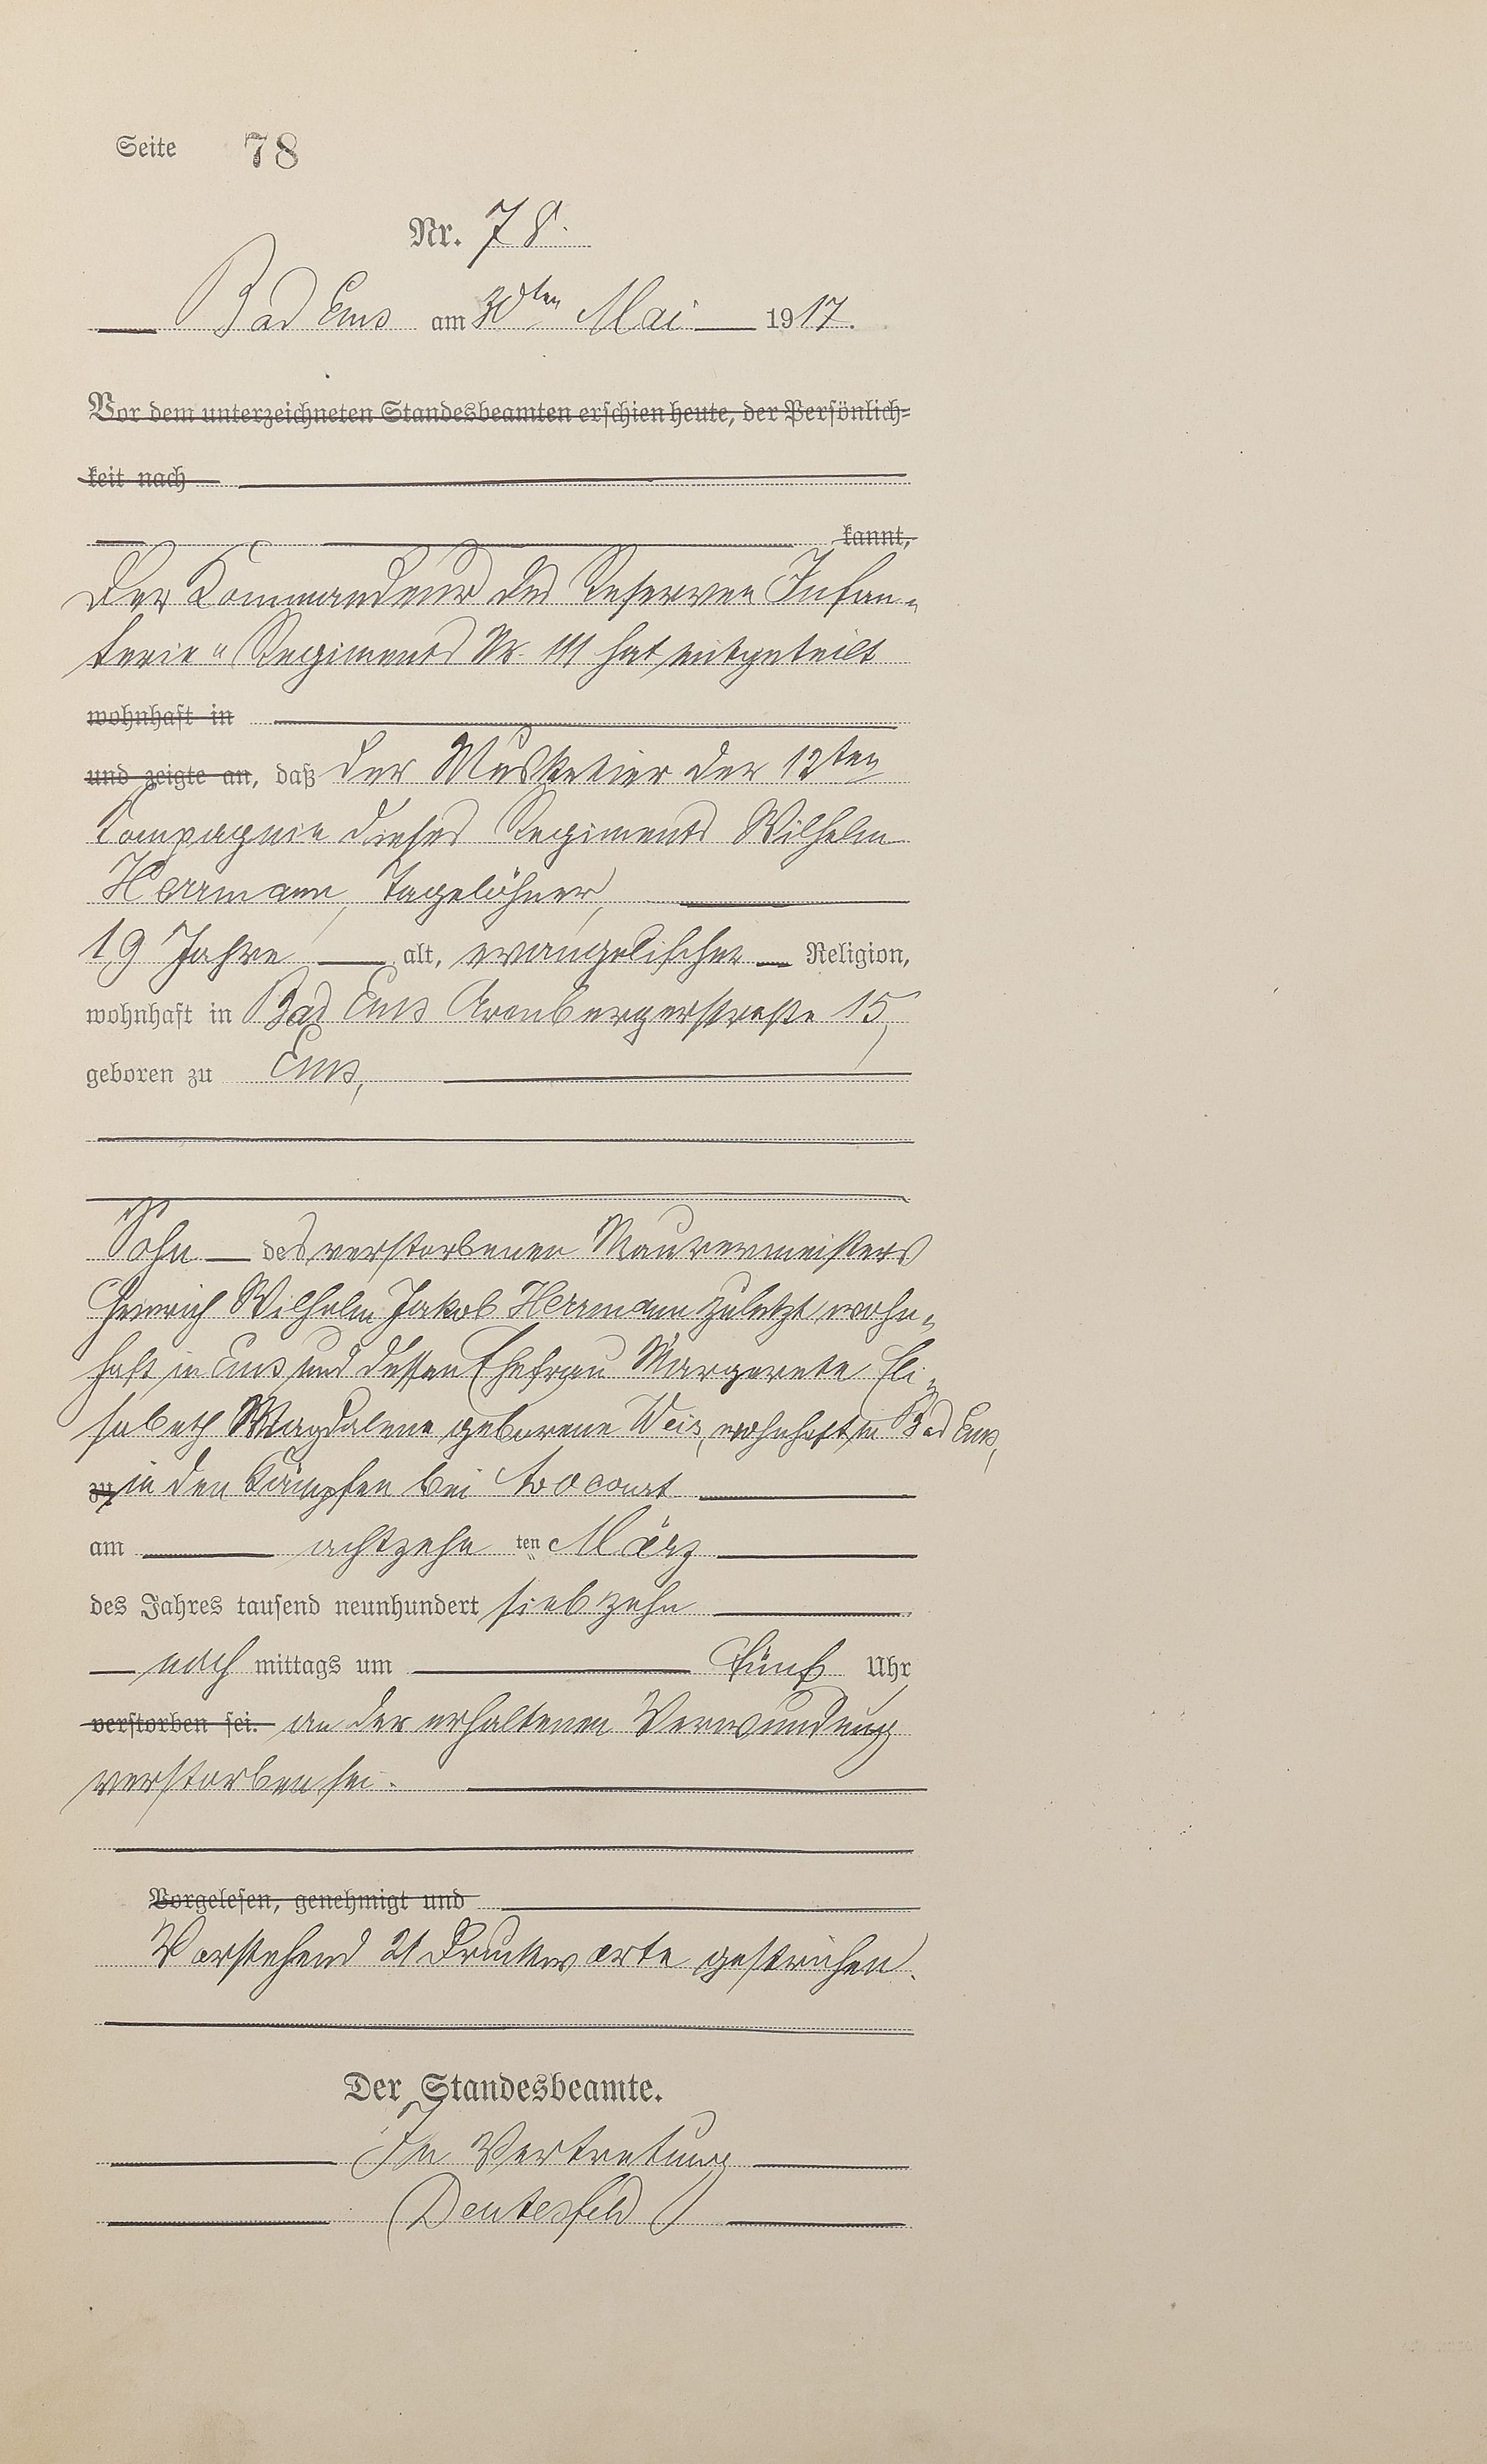 Seite 78
Nr. 78.
Bad Ems am 30ten Mai 1917.
Vor dem unterzeichneten Standesbeamten erschien heute, der Persönlich-
keit nach
kannt,
Der Kommandeur des Reserve Infan-
terie-Regiments Nr. 111 hat mitgeteilt
wohnhaft in
und zeigte an, daß der Musketier der 12ten
Compagnie dieses Regiments Wilhelm
Herrmann, Tagelöhner,
19 Jahre alt, evangelischer Religion,
wohnhaft in Bad Ems Arenbergerstraße 15,
geboren zu Ems,
Sohn des verstorbenen Maurermeisters
Heinrich Wilhelm Jakob Herrmann zuletzt wohn-
haft in Ems und dessen Ehefrau Margarete Eli-
sabeth Magdalene geborene Weis, wohnhaft in Bad Ems,
zu in den Kämpfen bei Avocourt
am achtzehn ten März
des Jahres tausend neunhundert siebzehn
nach mittags um fünf Uhr
verstorben sei. an der erhaltenen Verwundung
verstorben sei.
Vorgelesen, genehmigt und
Vorstehend 21 Druckworte gestrichen.
Der Standesbeamte.
In Vertretung